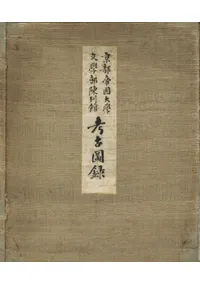 京都帝國大學
文學部陳列館
考古圖錄